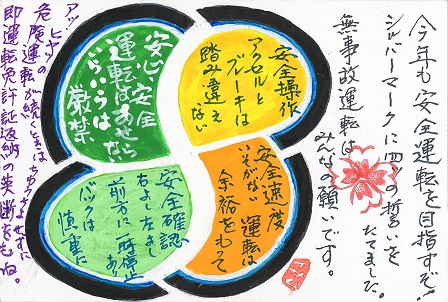 今年も安全運転を目指すぞ!
シルバーマークに四つの誓いを
たてました。
無事故運転は
みんなの願いです。
安全操作
アクセルと
ブレーキは
踏み違え
ない
安心・安全
運転はあせらない
いらいらは
厳禁
安全速度
いそがない
運転は
余裕をもって
安全確認
右よし左よし
前方に
バックは
慎重に
アッ ヒヤッの
危険運転が続くときはちゅうちょせずに
即運転免許証返納の英断をもね。